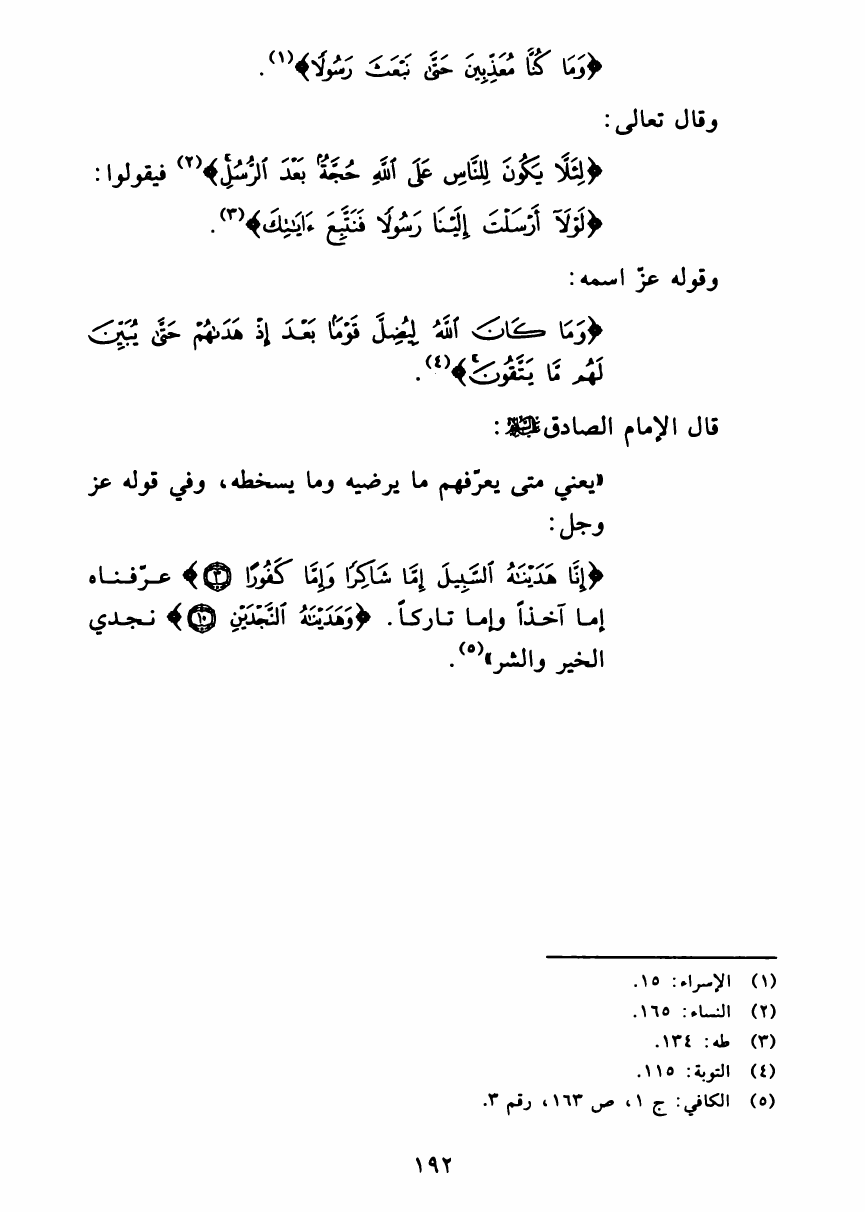 ﴿وَمَا كُنَّا مُعَذِّبِينَ حَتَّىٰ نَبْعَثَ رَسُولًا﴾(١).
وقال تعالى:
﴿لِئَلَّا يَكُونَ لِلنَّاسِ عَلَى ٱللَّهِ حُجَّةٌۢ بَعْدَ ٱلرُّسُلِۚ﴾(٢) فيقولوا:
﴿لَوْلَآ أَرْسَلْتَ إِلَيْنَا رَسُولًا فَنَتَّبِعَ ءَايَٰتِكَ﴾(٣).
وقوله عزّ اسمه:
﴿وَمَا كَانَ ٱللَّهُ لِيُضِلَّ قَوْمًۢا بَعْدَ إِذْ هَدَىٰهُمْ حَتَّىٰ يُبَيِّنَ
لَهُم مَّا يَتَّقُونَۚ﴾(٤).
قال الإمام الصادق عليه السلام:
«يعني متى يعرّفهم ما يرضيه وما يسخطه، وفي قوله عز
وجل:
﴿إِنَّا هَدَيْنَٰهُ ٱلسَّبِيلَ إِمَّا شَاكِرًا وَإِمَّا كَفُورًا ٣﴾ عـرّفـنـاه
إما آخـذاً وإمـا تـاركـاً. ﴿وَهَدَيْنَٰهُ ٱلنَّجْدَيْنِ ١٠﴾ نـجـدي
الخير والشر»(٥).
(١) الإسراء: ١٥.
(٢) النساء: ١٦٥.
(٣) طه: ١٣٤.
(٤) التوبة: ١١٥.
(٥) الكافي: ج ١، ص ١٦٣، رقم ٣.
١٩٢